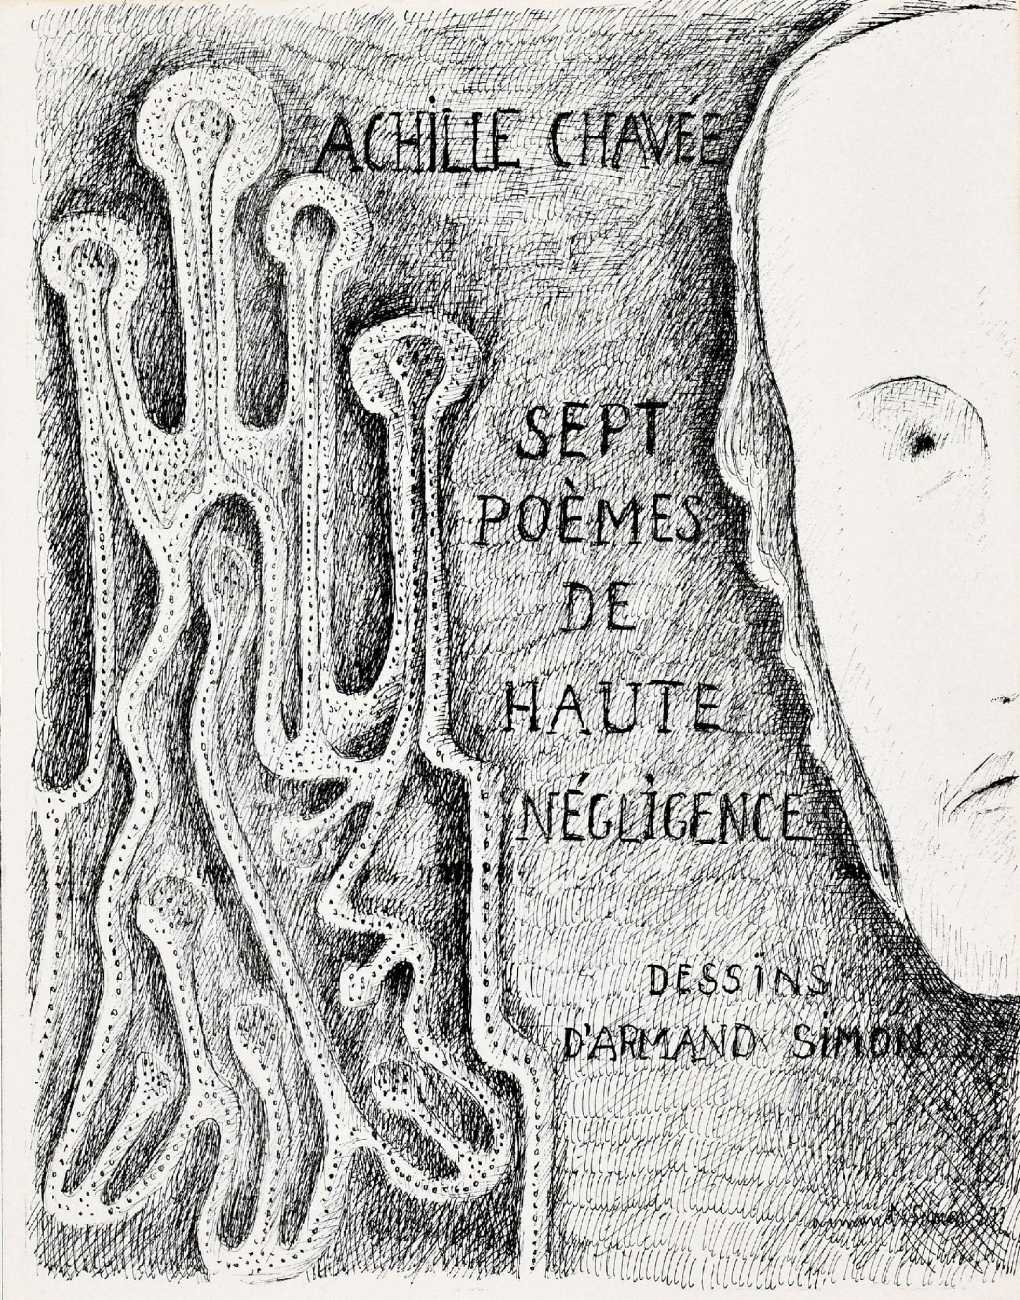 ACHİLLE CHAVÉE
SEPT
POÈMES
DE
HAUTE
NÉGLİGENCE
DESSİNS
D'ARMAND SİMON
armand Simon